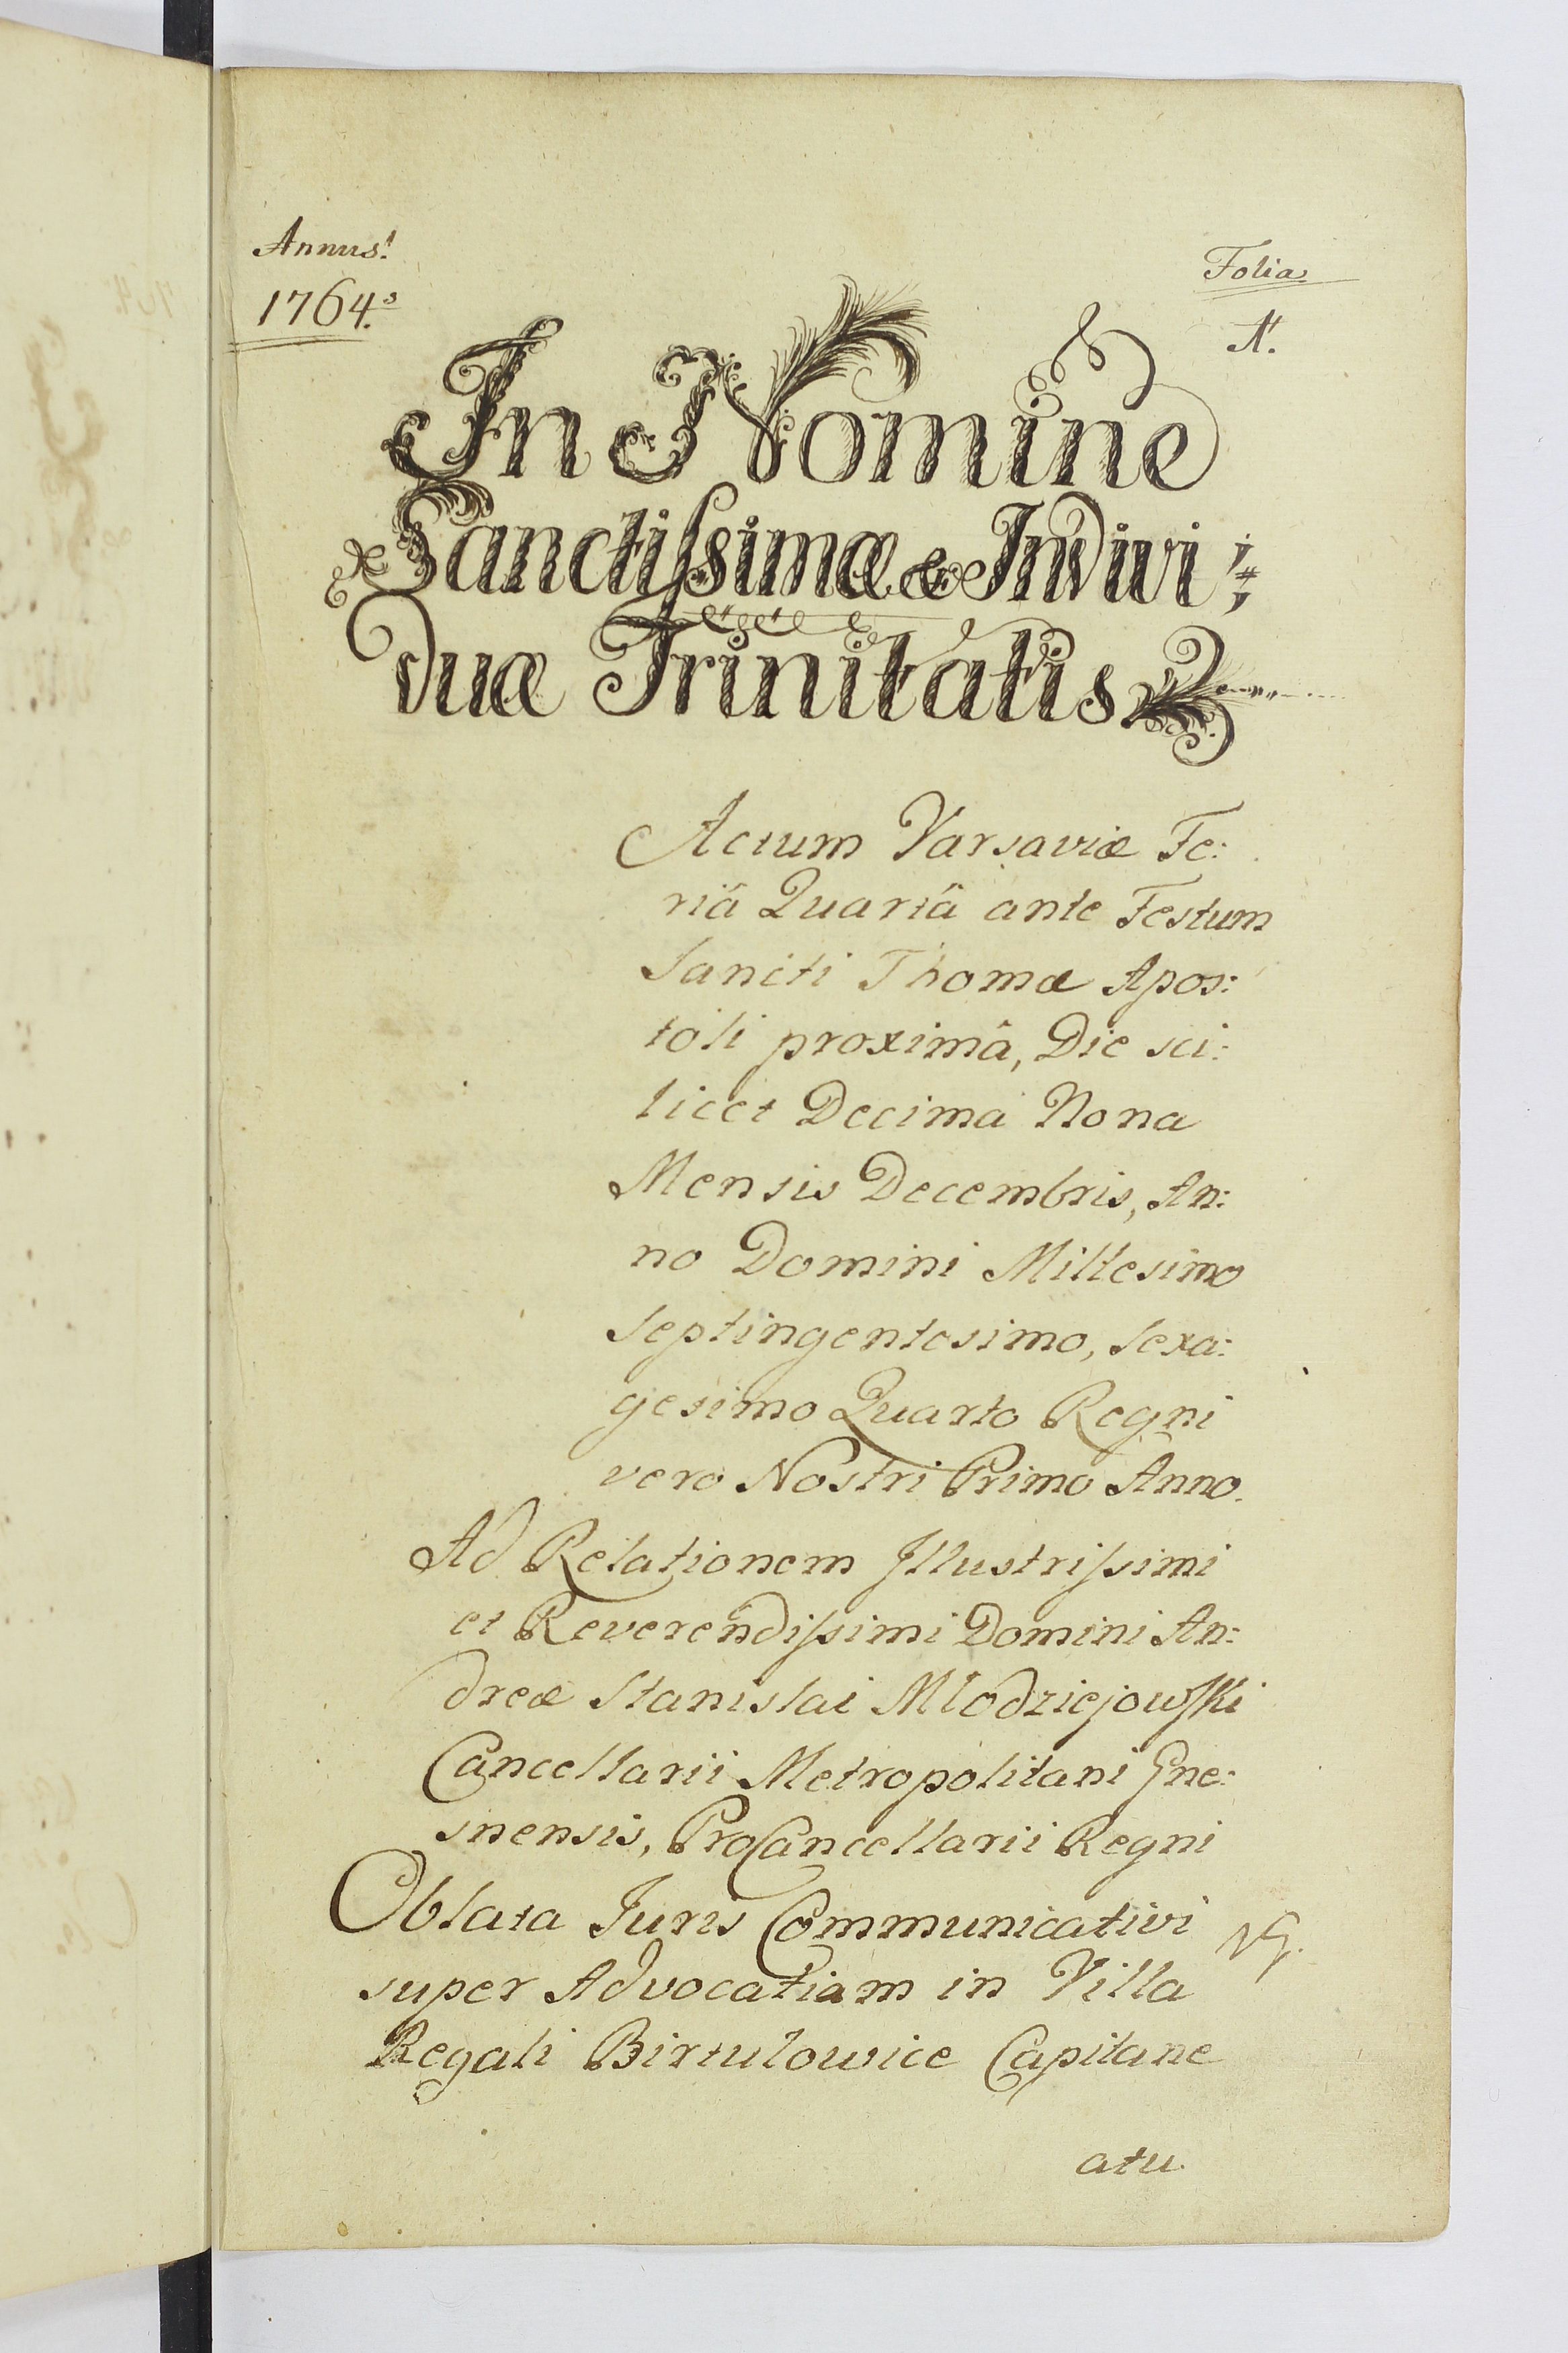 Annus!
1764.
Folia
1.
In Nomine
Sanctissimæ & Indivi:
duæ Trinitatis
Actum Varsaviæ Fe:
riâ Quartâ ante Festum
Sancti Thomæ Apos:
toli proximâ, Die sci:
licet Decima Nona
Mensis Decembris, An:
no Domini Millesimo
Septingentesimo, Sexa:
gesimo Quarto Regni
vero Nostri Primo Anno.
Ad Relationem Illustrissimi
et Reverendissimi Domini An:
dreæ Stanislai Młodziejowski
Cancellarii Metropolitani Gne:
snensis, ProCancellarii Regni
Oblata Juris Communicativi
super Advocatiam in Villa
Regali Birtułowice Capitane
atu